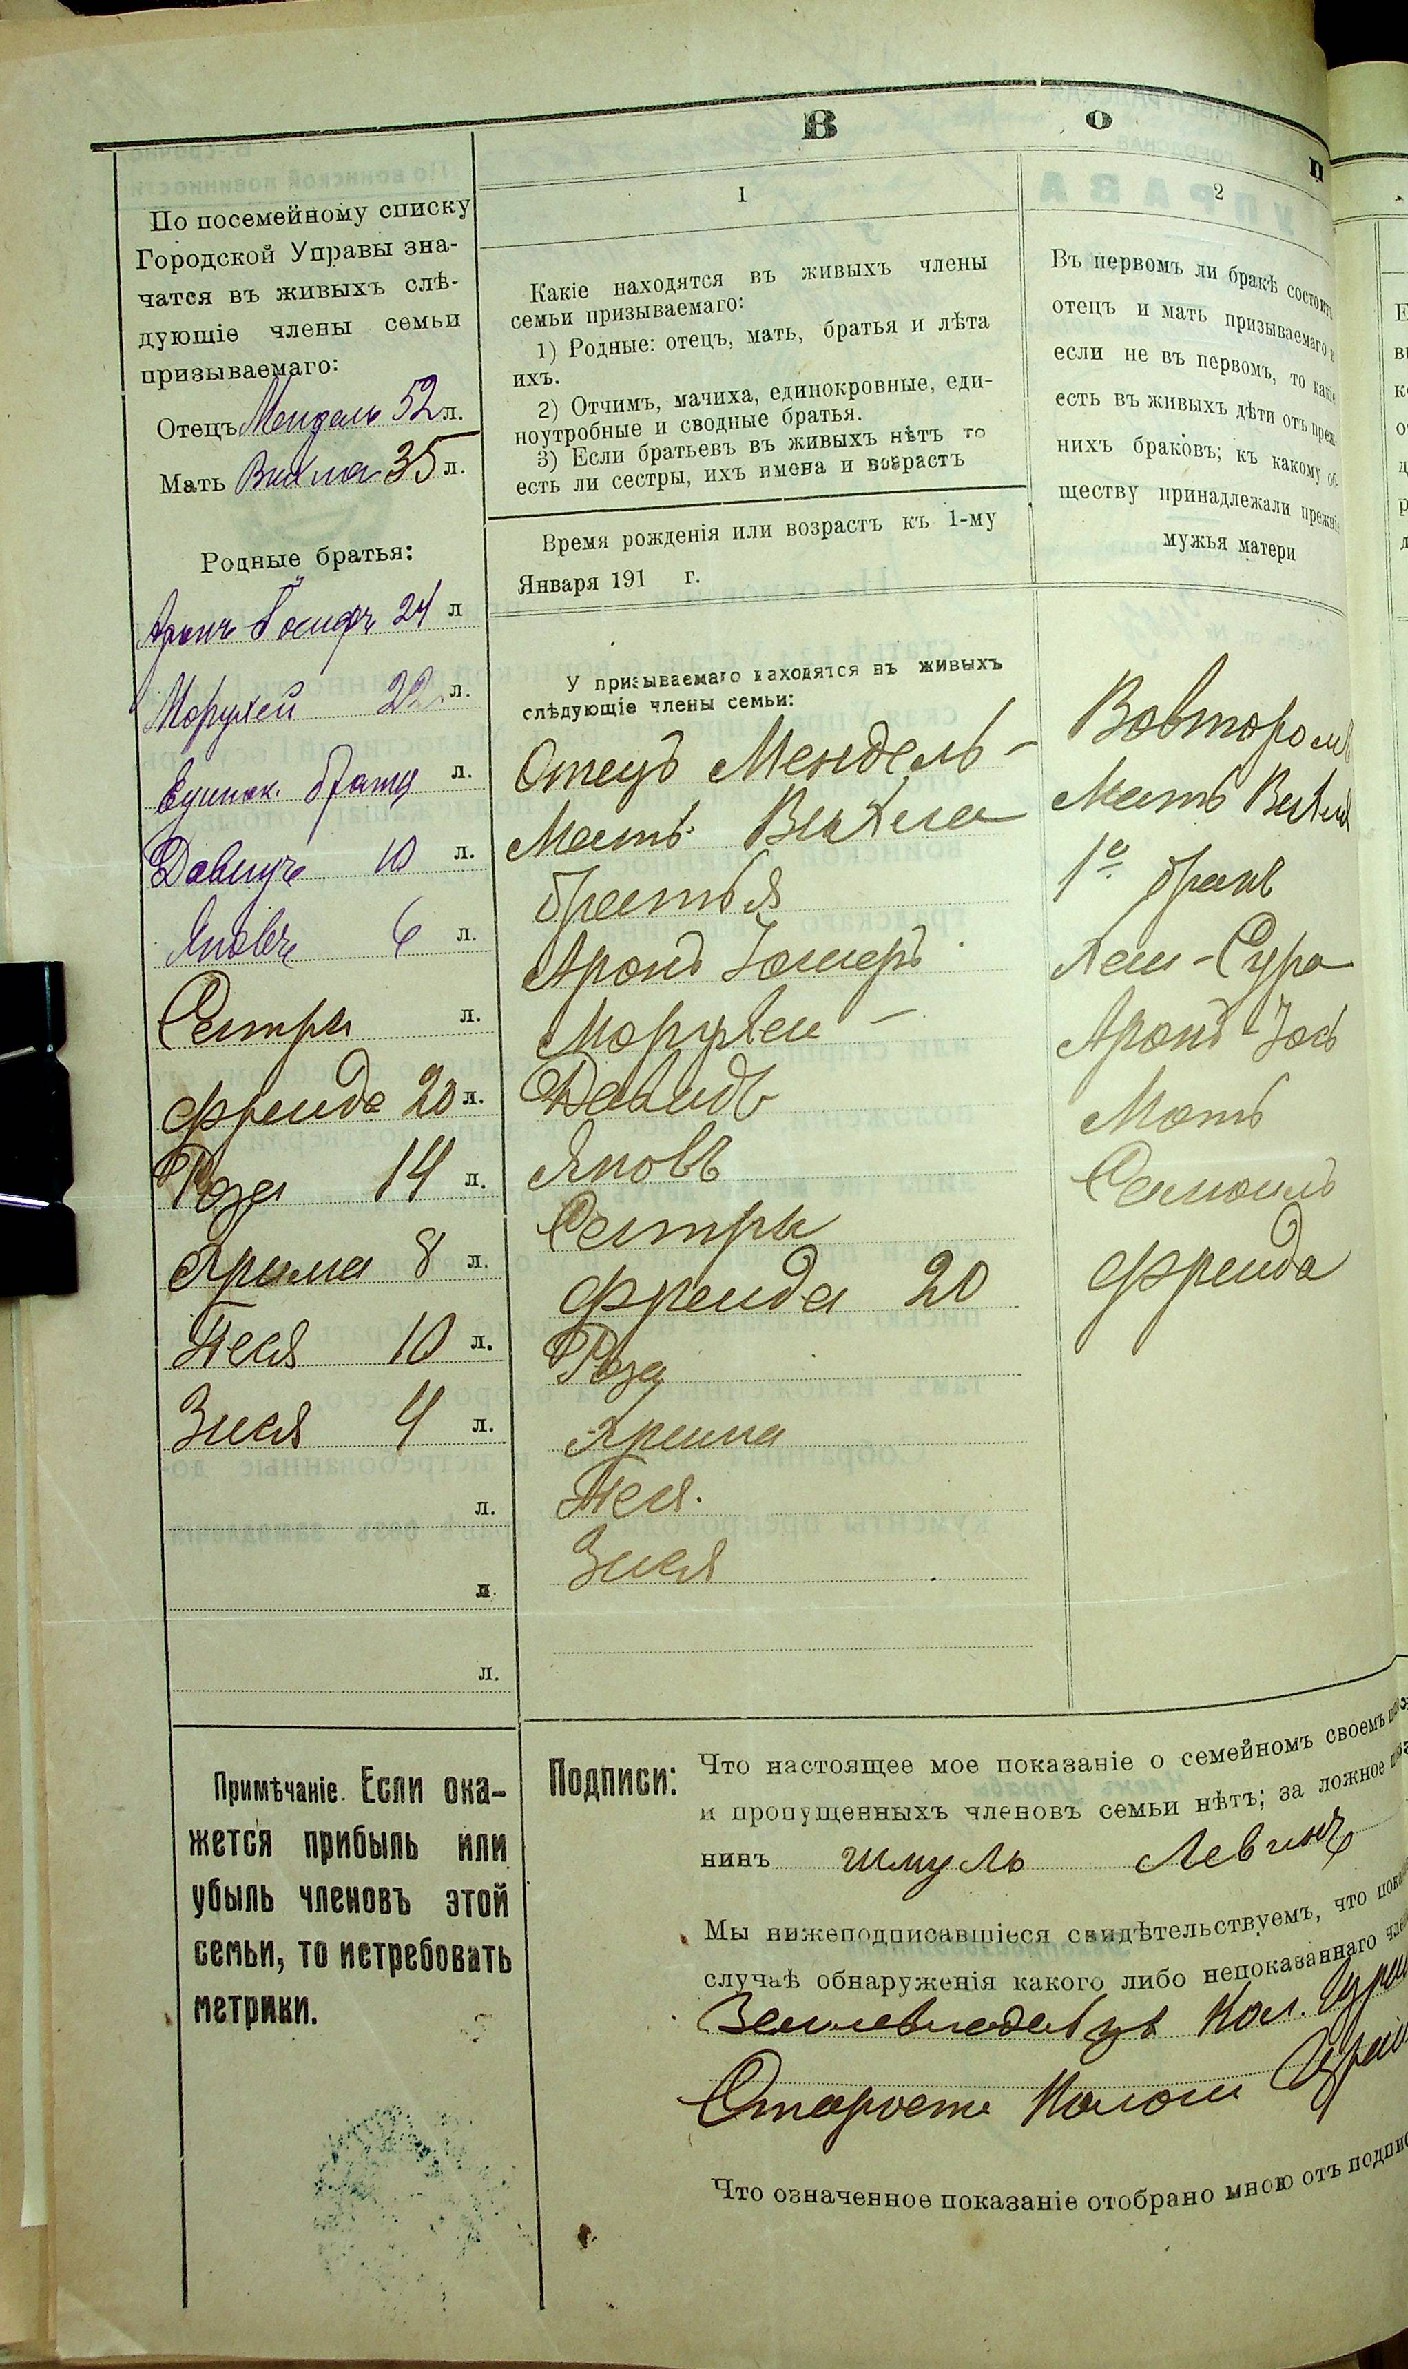 В о п
По посемейному списку
Городской Управы зна-
чатся въ живыхъ слѣ-
дующіе члены семьи
призываемаго:
Отецъ Мендель 52 л.
Мать Вихна 35 л.
Родные братья:
Аронъ Іосифъ 24 л
Мордухей 22 л.
Единок. братья л.
Давидъ 10 л.
Яковъ 6 л.
Сестры л.
Фрейда 20 л.
Роза 14 л.
8 л.
Песя 10 л.
Зися 4 л.
л.
л
л.
1
Какіе находятся въ живыхъ члены
семьи призываемаго:
1) Родные: отецъ, мать, братья и лѣта
ихъ.
2) Отчимъ, мачиха, единокровные, еди-
ноутробные и сводные братья.
3) Если братьевъ въ живыхъ нѣтъ то
есть ли сестры, ихъ имена и возрастъ
Время рожденія или возрастъ къ 1-му
Января 191 г.
У призываемаго находятся въ живыхъ
слѣдующіе члены семьи:
Отецъ Мендель -
Мать Вихна
братья
Аронъ
Мордухей -
Давидъ
Яковъ
Сестры
Фрейда 20
Роза
Песя.
Зися
2
Въ первомъ ли бракѣ состоитъ
отецъ и мать призываемаго и
если не въ первомъ, то какіе
есть въ живыхъ дѣти отъ преж
нихъ браковъ; къ какому об
ществу принадлежали прежніе
мужья матери
Вовторомъ
Мать Вихна
1й бракъ
Хая-Сура
Аронъ Іос
Мот
Самоиль
Фрейда
Примѣчаніе. Если ока-
жется прибыль или
убыль членовъ этой
семьи, то истребовать
метрики.
Подписи:
Что настоящее мое показаніе о семейномъ своемъ
и пропущенныхъ членовъ семьи нѣтъ; за ложное
нинъ Шмуль Левинъ
Мы нижеподписавшіеся свидѣтельствуемъ, что
случаѣ обнаруженія какого либо непоказаннаго
Землевладелецъ Кол.
Староста Колоніи
Что означенное показаніе отобрано мною отъ